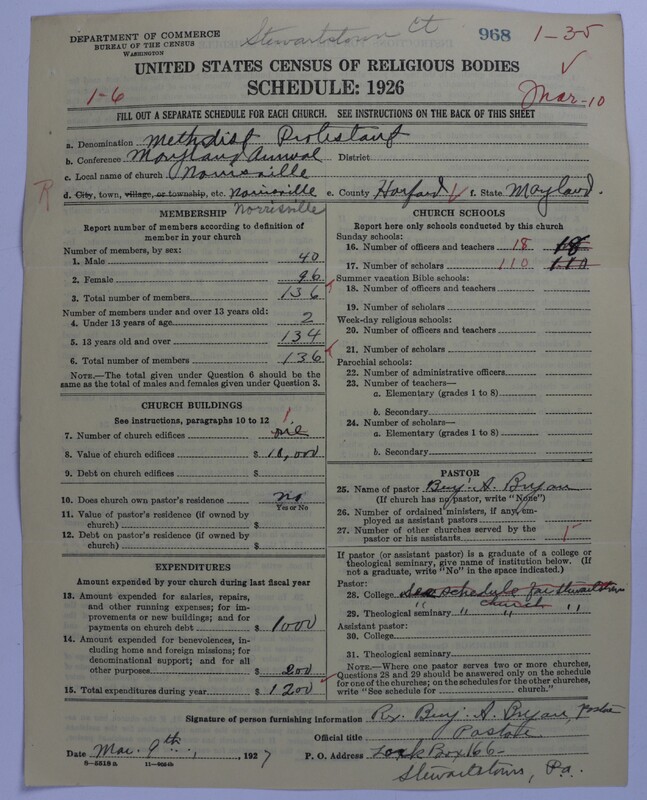 DEPARTMENT OF COMMERCE
BUREAU OF THE CENSUS
WASHINGTON
Stewartstown Ct
968
1-35
UNITED STATES CENSUS OF RELIGIOUS BODIES
SCHEDULE: 1926
1-6
Mar-10
FILL OUT A SEPARATE SCHEDULE FOR EACH CHURCH. SEE INSTRUCTIONS ON THE BACK OF THIS SHEET
a. Denomination Methodist Protestant
b. Conference Maryland Annual District
c. Local name of church Norrisville
R
d. City, town, village, or township, etc. Norrisville e. County Harford f. State Maryland.
Norrisville
MEMBERSHIP
Report number of members according to definition of
member in your church
Number of members, by sex:
1. Male 40
2. Female 96
3. Total number of members 136
Number of members under and over 13 years old:
4. Under 13 years of age 2
5. 13 years old and over 134
6. Total number of members 136
NOTE.—The total given under Question 6 should be
same as the total of males and females given under Question 3.
CHURCH BUILDINGS
See instructions, paragraphs 10 to 12
1
7. Number of church edifices one
8. Value of church edifices $ 18,000
9. Debt on church edifices $
10. Does church own pastor's residence no
Yes or No
11. Value of pastor's residence (if owned by
church) $
12. Debt on pastor's residence (if owned by
church) $
EXPENDITURES
Amount expended by your church during last fiscal year
13. Amount expended for salaries, repairs,
and other running expenses; for im-
provements or new buildings; and for
payments on church debt $ 1000
14. Amount expended for benevolences, in-
cluding home and foreign missions; for
denominational support; and for all
other purposes $ 200
15. Total expenditures during year $ 1200
CHURCH SCHOOLS
Report here only schools conducted by this church
Sunday schools:
16. Number of officers and teachers 18 18
17. Number of scholars 110 110
Summer vacation Bible schools:
18. Number of officers and teachers
19. Number of scholars
Week-day religious schools:
20. Number of officers and teachers
21. Number of scholars
Parochial schools:
22. Number of administrative officers
23. Number of teachers—
a. Elementary (grades 1 to 8)
b. Secondary
24. Number of scholars—
a. Elementary (grades 1 to 8)
b. Secondary
PASTOR
25. Name of pastor Benj. A. Bryan
(If church has no pastor, write "None")
26. Number of ordained ministers, if any, em-
ployed as assistant pastors
27. Number of other churches served by the
pastor or his assistants
If pastor (or assistant pastor) is a graduate of a college or
theological seminary, give name of institution below. (If
not a graduate, write "No" in the space indicated.)
Pastor:
28. College See schedule for Stewartstown
29. Theological seminary " " church " "
Assistant pastor:
30. College
31. Theological seminary
NOTE.—Where one pastor serves two or more churches,
Questions 28 and 29 should be answered only on the schedule
for one of the churches; on the schedules for the other churches,
write "See schedule for church."
Signature of person furnishing information Rev. Benj. A. Bryan, Pastor
Official title Pastor
Date Mar. 9th, 1927 P. O. Address Lock Box 166-
Stewartstown, Pa.